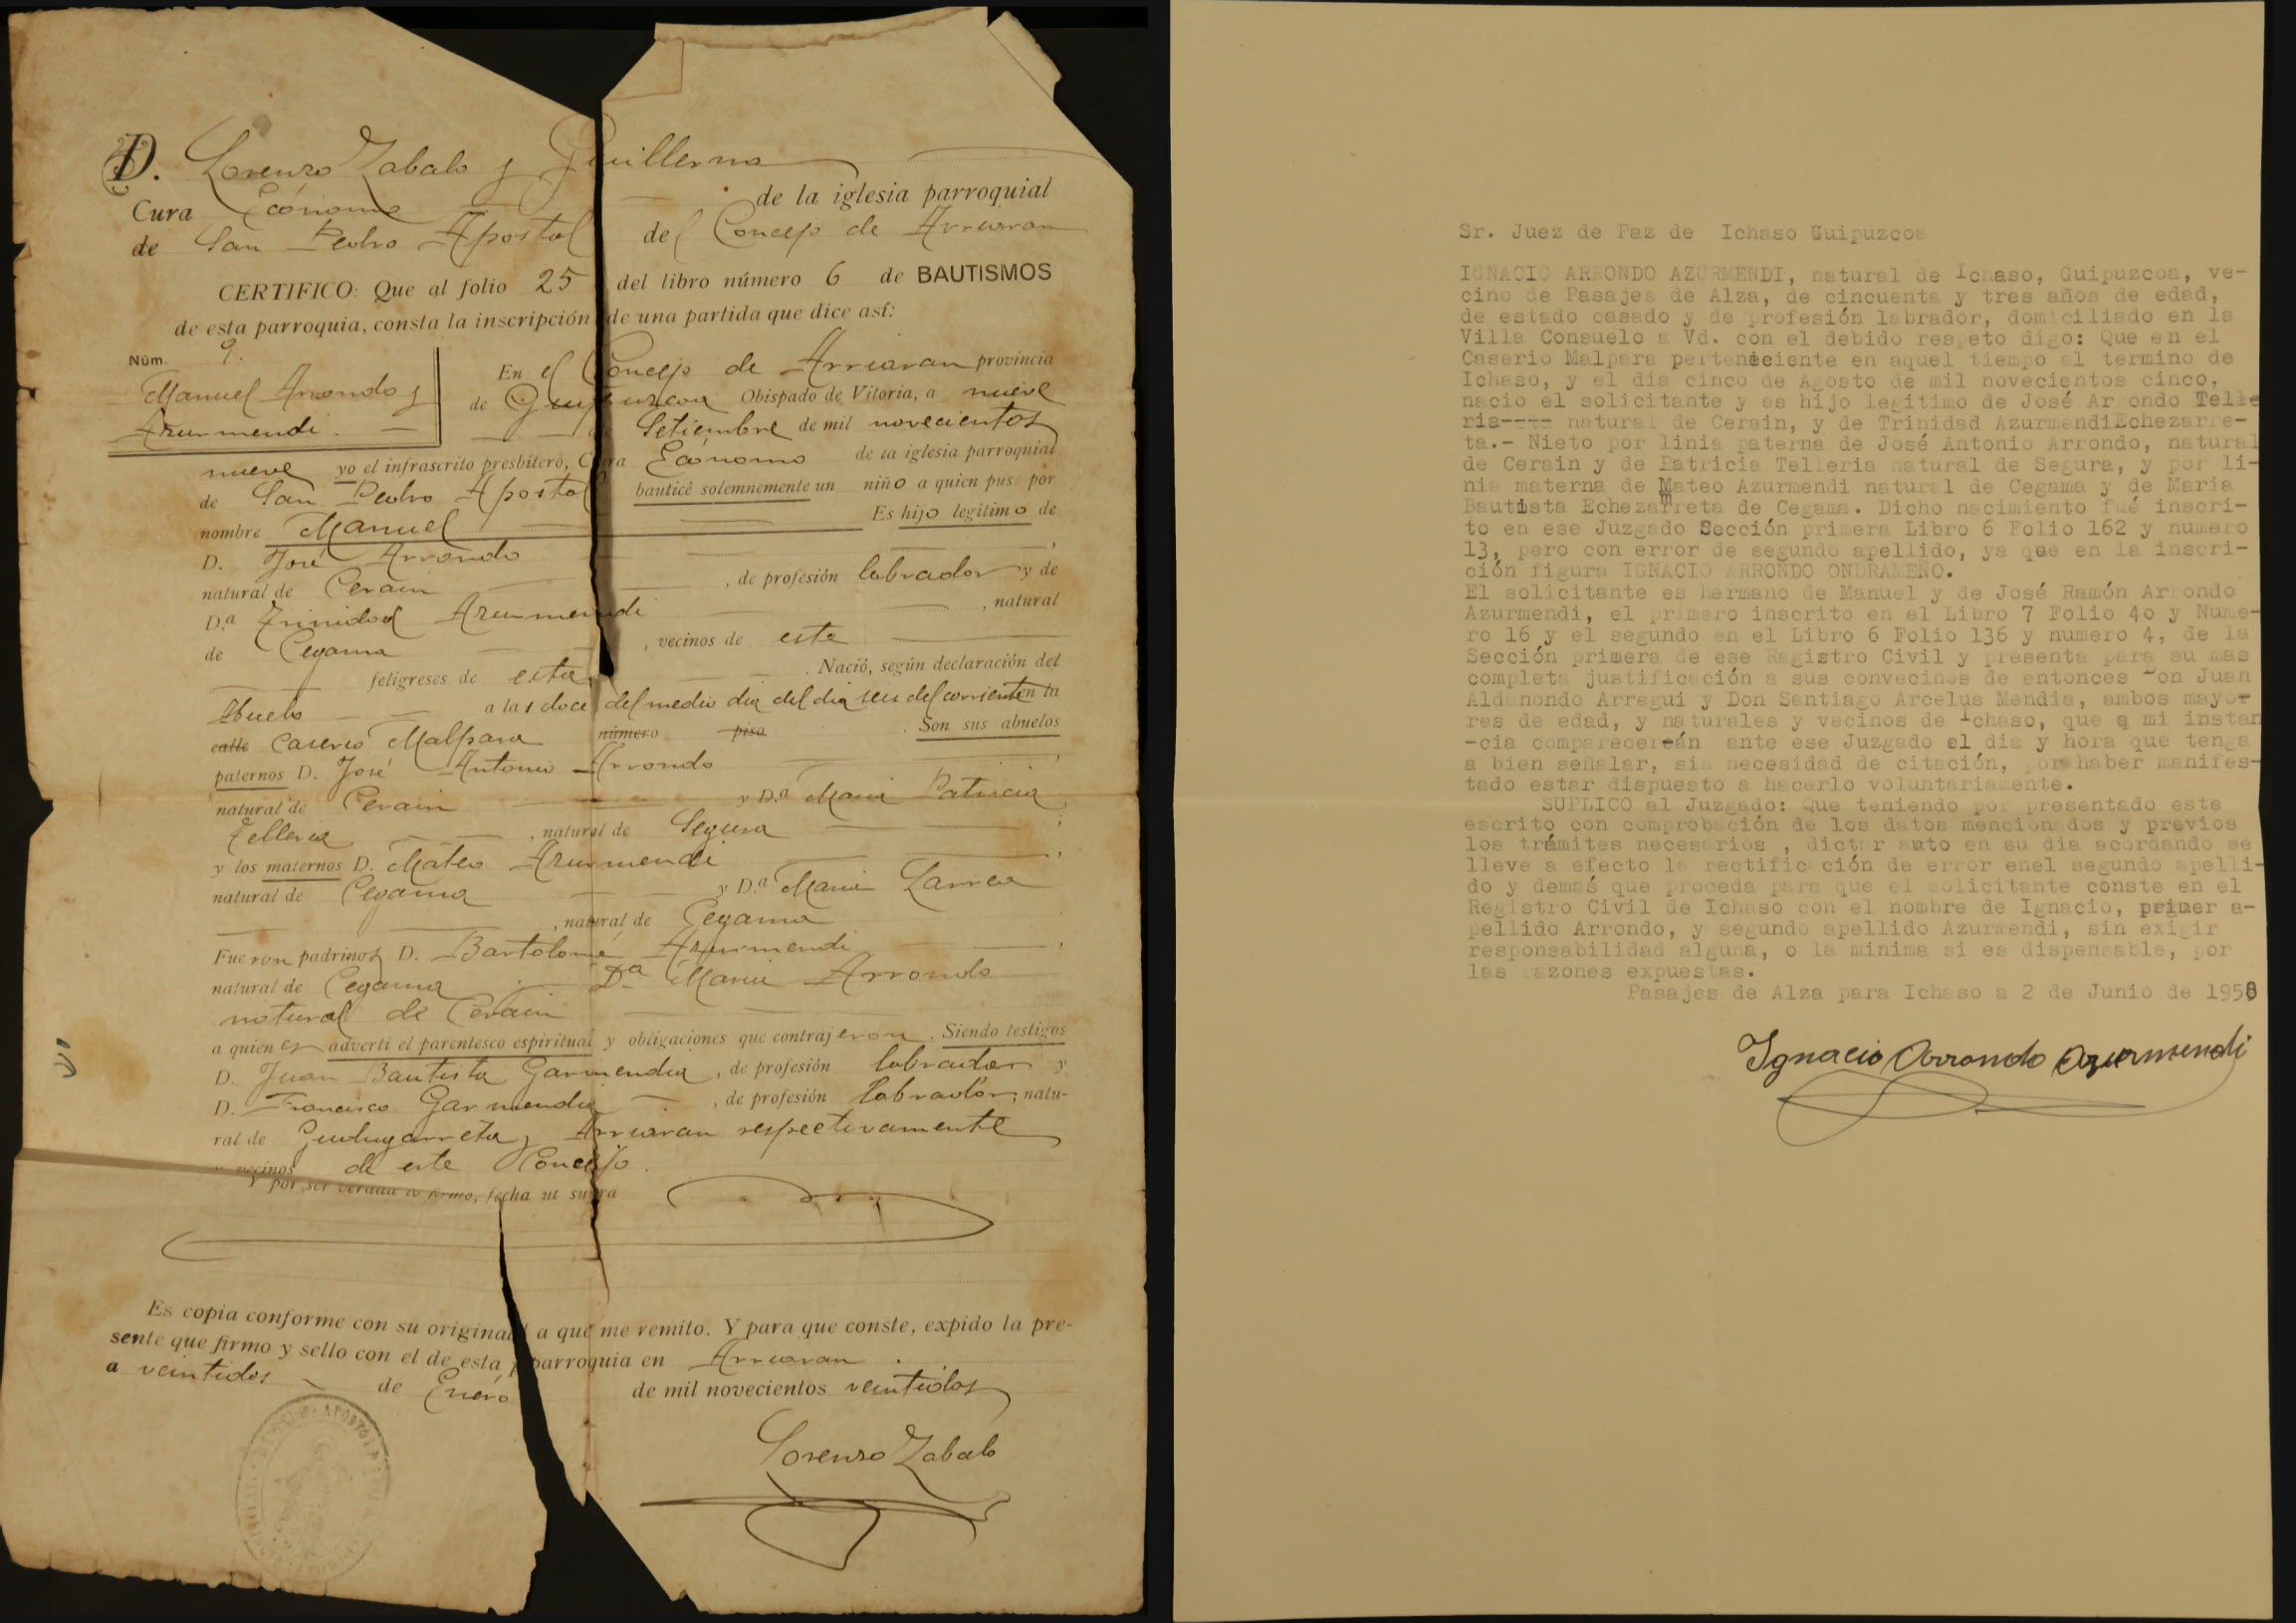 D. Lorenzo Zabalo y Guillerna
Cura Ecónomo de la iglesia parroquial
de San Pedro Apostol del Concejo de Arriaran
CERTIFICO: Que al folio 25 del libro número 6 de BAUTISMOS
de esta parroquia, consta la inscripción de una partida que dice así:
Núm. 9.
Manuel Arrondo y
Azurmendi.
En el Concejo de Arriaran provincia
de Guipuzcoa Obispado de Vitoria, a nueve
de Setiembre de mil novecientos
nueve yo el infrascrito presbítero, Cura Ecónomo de la iglesia parroquial
de San Pedro Apostol bauticé solemnemente un niño a quien puse por
nombre Manuel Es hijo legitimo de
D. José Arrondo
natural de Cerain, de profesión labrador y de
D.ª Trinidad Azurmendi, natural
de Cegama, vecinos de esta
feligreses de esta. Nació, según declaración del
Abuelo a las doce del medio dia del dia seis del corriente en la
calle Caserio Malpara número piso. Son sus abuelos
paternos D. José Antonio Arrondo,
natural de Cerain y D.ª Maria Patricia
Telleria, natural de Segura;
y los maternos D. Mateo Azurmendi,
natural de Cegama y D.ª Maria Larrea
, natural de Cegama
Fueron padrinos D. Bartolomé Azurmendi,
natural de Cegama D.ª Maria Arrondo
natural de Cerain
a quienes advertí el parentesco espiritual y obligaciones que contrajeron. Siendo testigos
D. Juan Bautista Garmendia, de profesión labrador y
D. Francisco Garmendia, de profesión labrador, natu-
ral de Gudugarreta y Arriaran respectivamente
y vecinos de este Concejo.
Y por ser verdad lo firmo, fecha ut supra
Es copia conforme con su original a que me remito. Y para que conste, expido la pre-
sente que firmo y sello con el de esta parroquia en Arriaran.
a veintidos de Enero de mil novecientos veintidos
Lorenzo Zabalo
Sr. Juez de Paz de Ichaso Guipuzcoa
IGNACIO ARRONDO AZURMENDI, natural de Ichaso, Guipuzcoa, ve-
cino de Pasajes de Alza, de cincuenta y tres años de edad,
de estado casado y de profesión labrador, domiciliado en la
Villa Consuelo a Vd. con el debido respeto digo: Que en el
Caserio Malpara perteneciente en aquel tiempo al termino de
Ichaso, y el dia cinco de Agosto de mil novecientos cinco,
nacio el solicitante y es hijo legitimo de José Arrondo Telle
ria---- natural de Cerain, y de Trinidad AzurmendiEchezarre-
ta.- Nieto por linia paterna de José Antonio Arrondo, natural
de Cerain y de Patricia Telleria natural de Segura, y por li-
nia materna de Mateo Azurmendi natural de Cegama y de Maria
Bautista Echezarreta de Cegama. Dicho nacimiento fué inscri-
to en ese Juzgado Sección primera Libro 6 Folio 162 y numero
13, pero con error de segundo apellido, ya que en la inscri-
ción figura IGNACIO ARRONDO ONDRAMEÑO.
El solicitante es hermano de Manuel y de José Ramón Arrondo
Azurmendi, el primero inscrito en el Libro 7 Folio 40 y Nume-
ro 16 y el segundo en el Libro 6 Folio 136 y numero 4, de la
Sección primera de ese Registro Civil y presenta para su mas
completa justificación a sus convecinos de entonces Don Juan
Aldanondo Arregui y Don Santiago Arcelus Mendia, ambos mayo-
res de edad, y naturales y vecinos de Ichaso, que a mi instan
-cia comparecerán ante ese Juzgado el dia y hora que tenga
a bien señalar, sin necesidad de citación, por haber manifes-
tado estar dispuesto a hacerlo voluntariamente.
SUPLICO al Juzgado: Que teniendo por presentado este
escrito con comprobación de los datos mencionados y previos
los trámites necesarios , dictar auto en su dia acordando se
lleve a efecto la rectificación de error enel segundo apelli-
do y demás que proceda para que el solicitante conste en el
Registro Civil de Ichaso con el nombre de Ignacio, primer a-
pellido Arrondo, y segundo apellido Azurmendi, sin exigir
responsabilidad alguna, o la minima si es dispensable, por
las razones expuestas.
Pasajes de Alza para Ichaso a 2 de Junio de 1958
Ignacio Arrondo Azurmendi